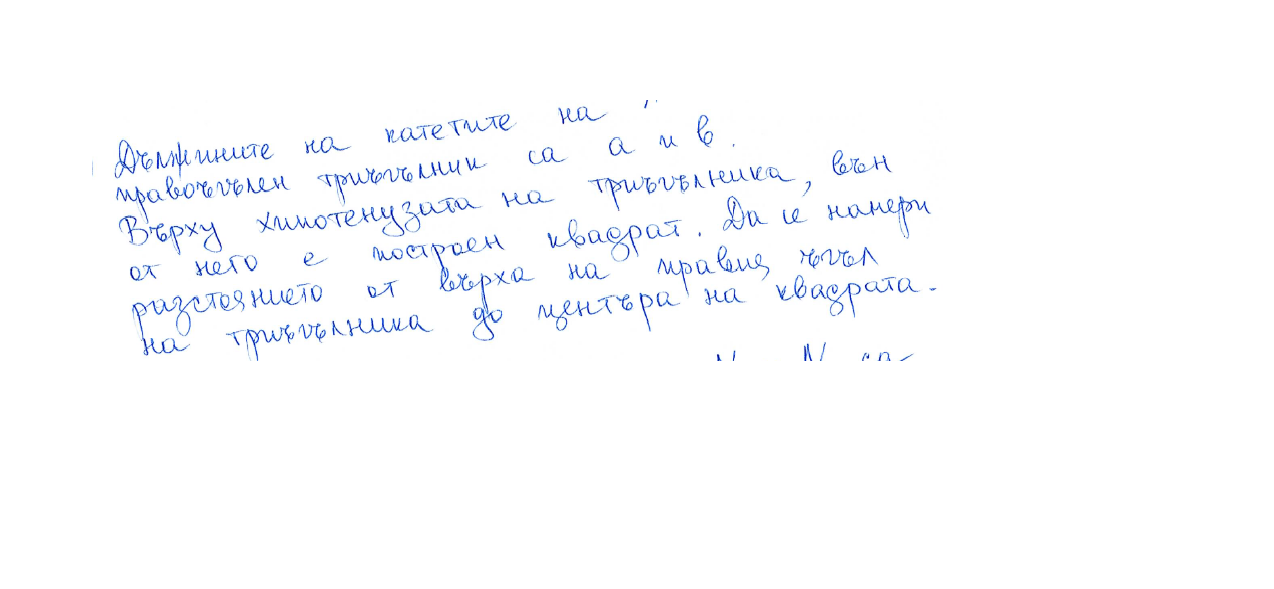 Дължините на катетите на
правоъгълен триъгълник са а и в.
Върху хипотенузата на триъгълника, вън
от него е построен квадрат. Да се намери
разстоянието от върха на правия ъгъл
на триъгълника до центъра на квадрата.